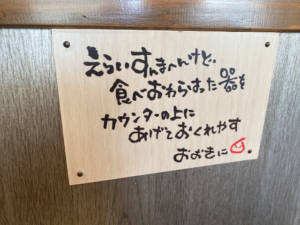 えらいすんまへんけど、
食べおわらはった器を
カウンターの上に
あげておくれやす
おおきに